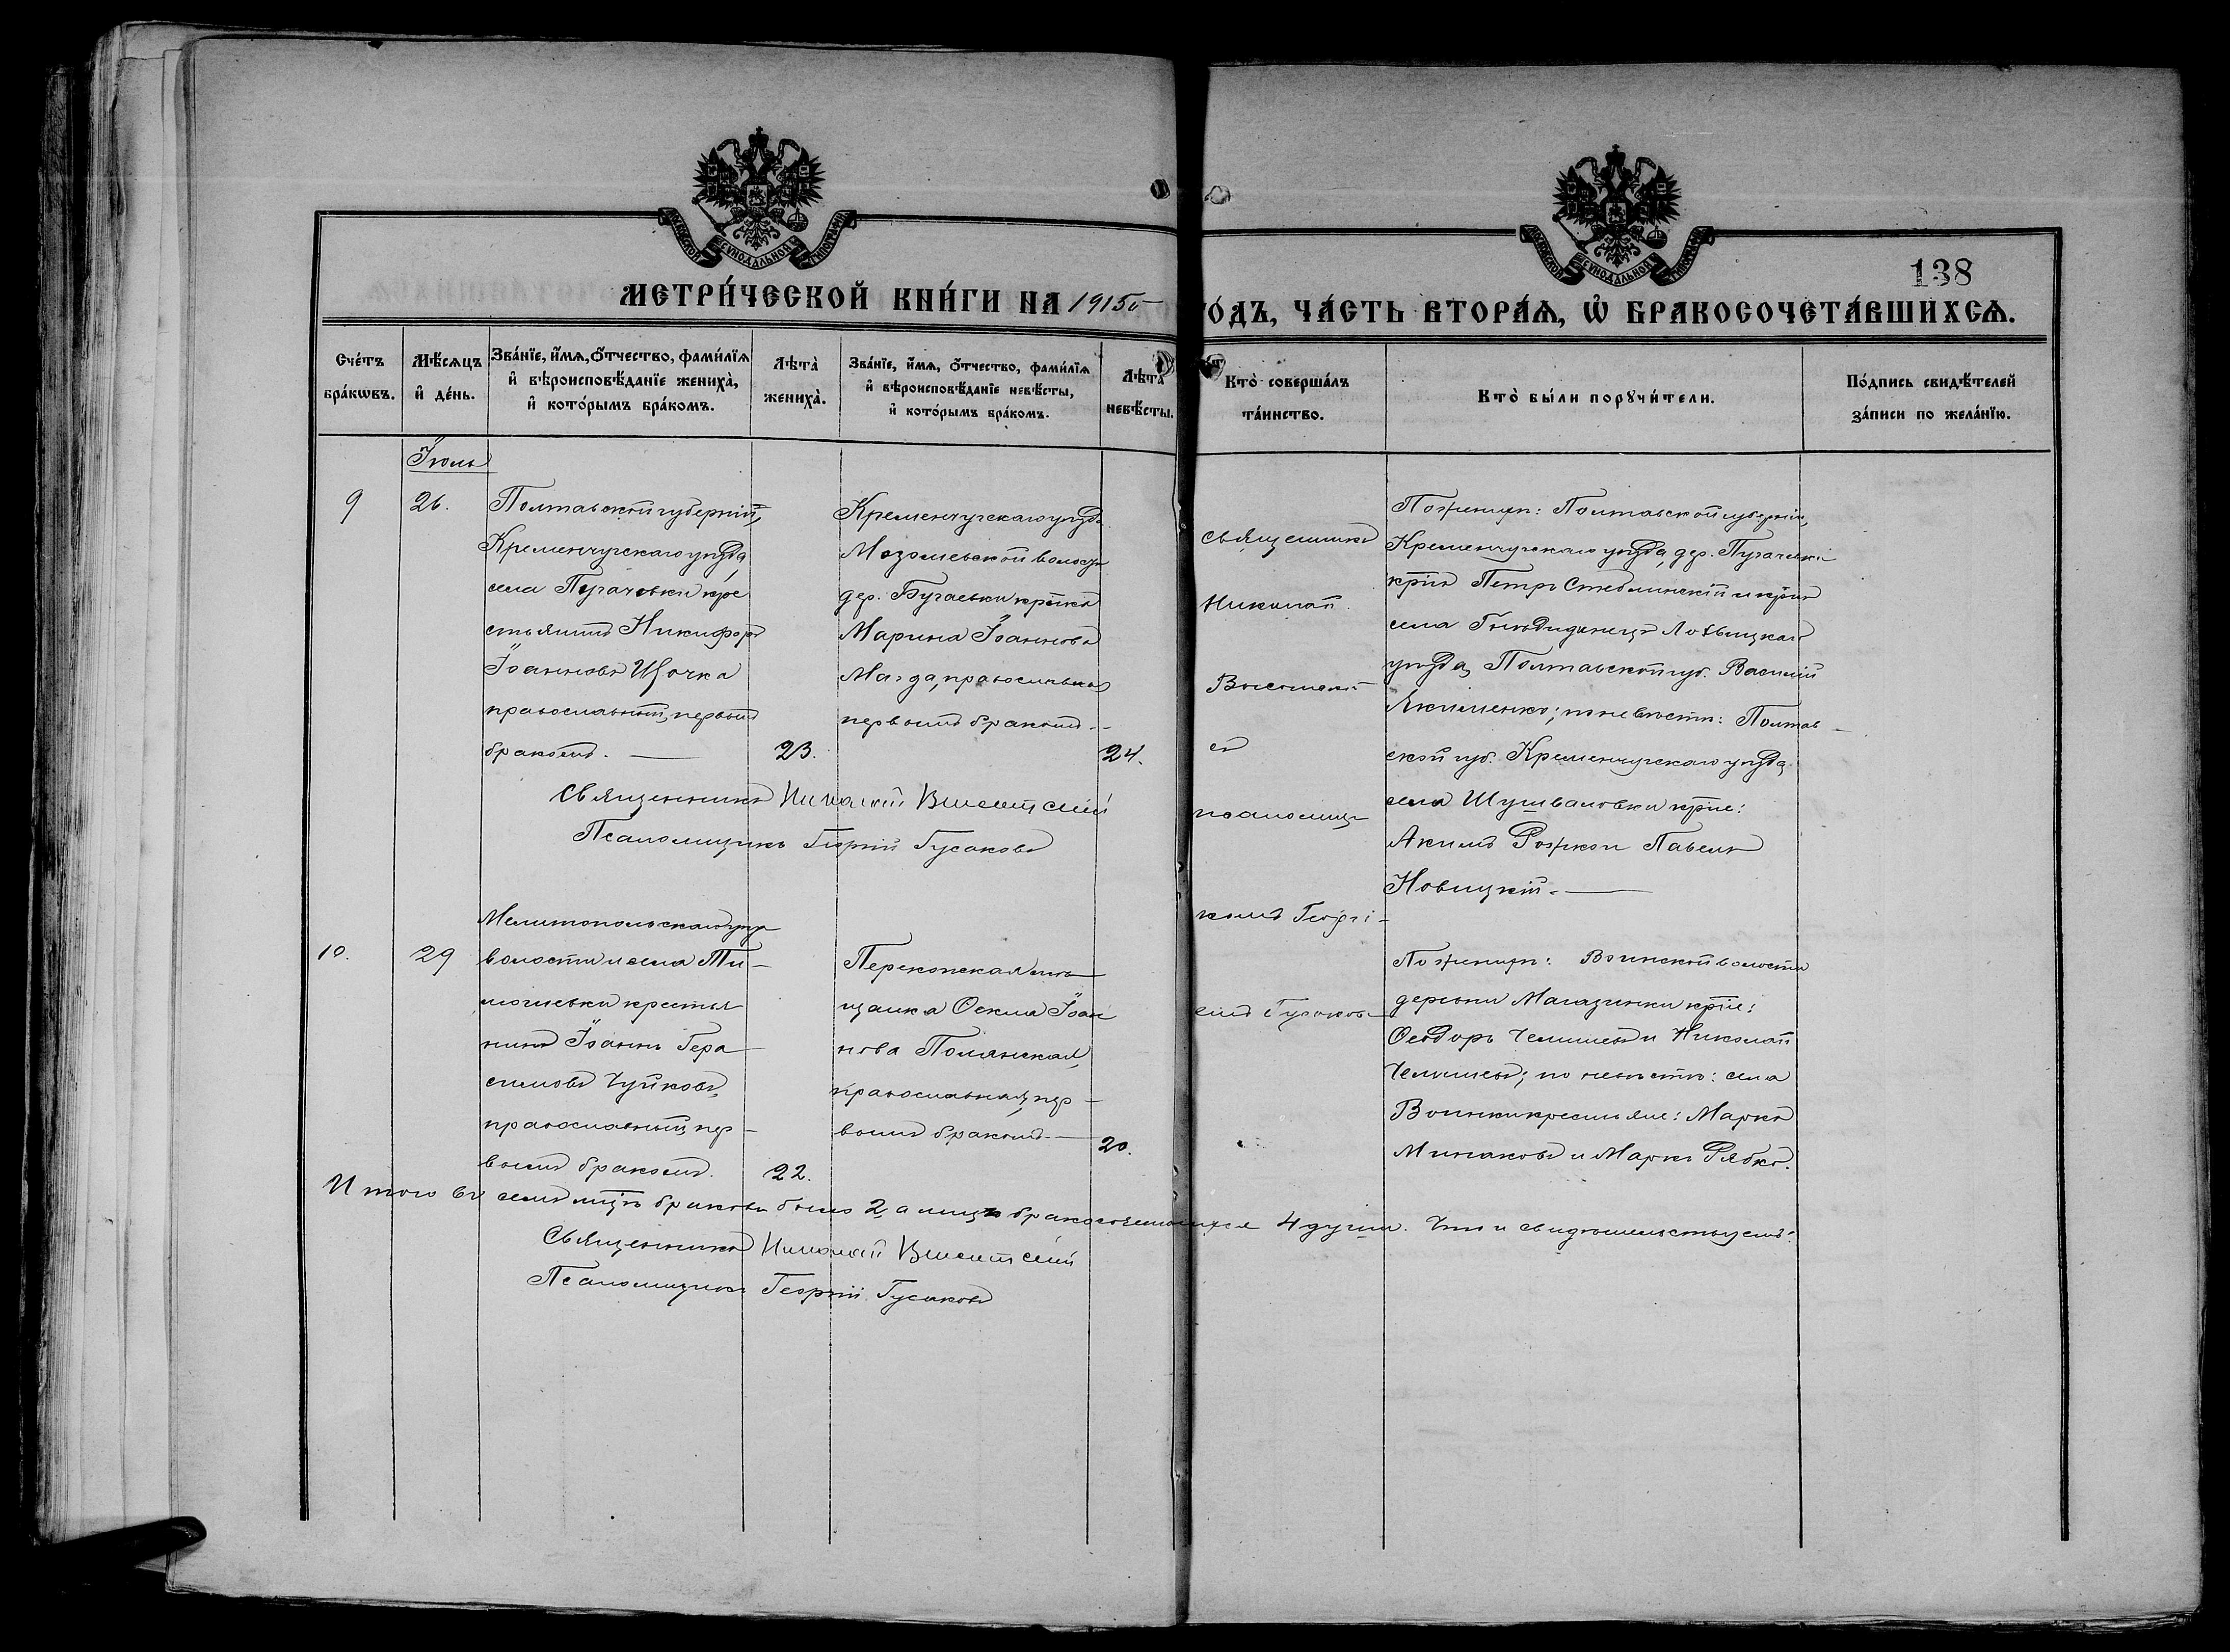 138
МЕТРИ́ЧЕСКОЙ КНИ́ГИ НА 1915й ГО́ДЪ, ЧА́СТЬ ВТОРА́Ѧ, Ѡ҆ БРАКОСОЧЕТА́ВШИХСѦ.
Сче́тъ бра́кѡвъ.
Мѣ́сѧцъ и҆ де́нь.
Зва́нїе, и҆́мѧ, ѻ҆́тчество, фами́лїѧ
и҆ вѣроисповѣ́данїе жениха̀,
и҆ кото́рымъ бра́комъ.
Лѣта̀ жениха̀.
Зва́нїе, и҆́мѧ, ѻ҆́тчество, фами́лїѧ
и҆ вѣроисповѣ́данїе невѣ́сты,
и҆ кото́рымъ бра́комъ.
Лѣта̀ невѣ́сты.
Кто̀ соверша́лъ
та́инство.
Кто̀ бы́ли порꙋчи́тели.
По́дпись свидѣ́телей
за́писи по жела́нїю.
Іюль
9
26.
Полтавской губерніи,
Кременчугскаго уѣзда
села Пугачевки кре
стьянинъ Никифоръ
Іоанновъ Щочка
православный, первымъ
бракомъ.
23.
Кременчугскаго уѣзда
волости
дер. Бугаевки кр-ка
Марина Іоаннова
Магда, православная
первымъ бракомъ.
24.
Священникъ
Николай
Высотскій
съ
псаломщи-
комъ Георгі-
емъ Гусаков-
По женихѣ: Полтавской губерніи,
Кременчугскаго уѣзда, дер. Пугачевки
Петръ Стеблинскій и
села Лохвицкаго
уѣзда, Полтавской губ. Василій
Якименко; по невѣстѣ: Полтав-
ской губ. Кременчугскаго уѣзда
села Шушваловки кр-не:
Акимъ Рожко и Павелъ
Новицкій.
Священникъ Николай Высотскій
Псаломщикъ Георгій Гусаковъ
10.
29
Мелитопольскаго уѣз
волости и села Ти-
мошевки крестья
нинъ Іоаннъ Гера-
симовъ Чуйковъ,
православный, пер-
вымъ бракомъ.
22.
Перекопская мѣ-
щанка Іоан
нова Полянская,
православная, пер-
вымъ бракомъ.
20.
По женихѣ: Воинской волости
деревни Магазинки кр-не:
Ѳеодоръ и Николай
по невѣстѣ: села
Воинки крестьяне: Маркъ
Минаковъ и Маркъ Рябко.
Итого въ семъ мѣс. браковъ было 2, а лицъ бракосочетавшихся 4 души. Что и свидѣтельствуемъ:
Священникъ Николай Высотскій
Псаломщикъ Георгій Гусаковъ